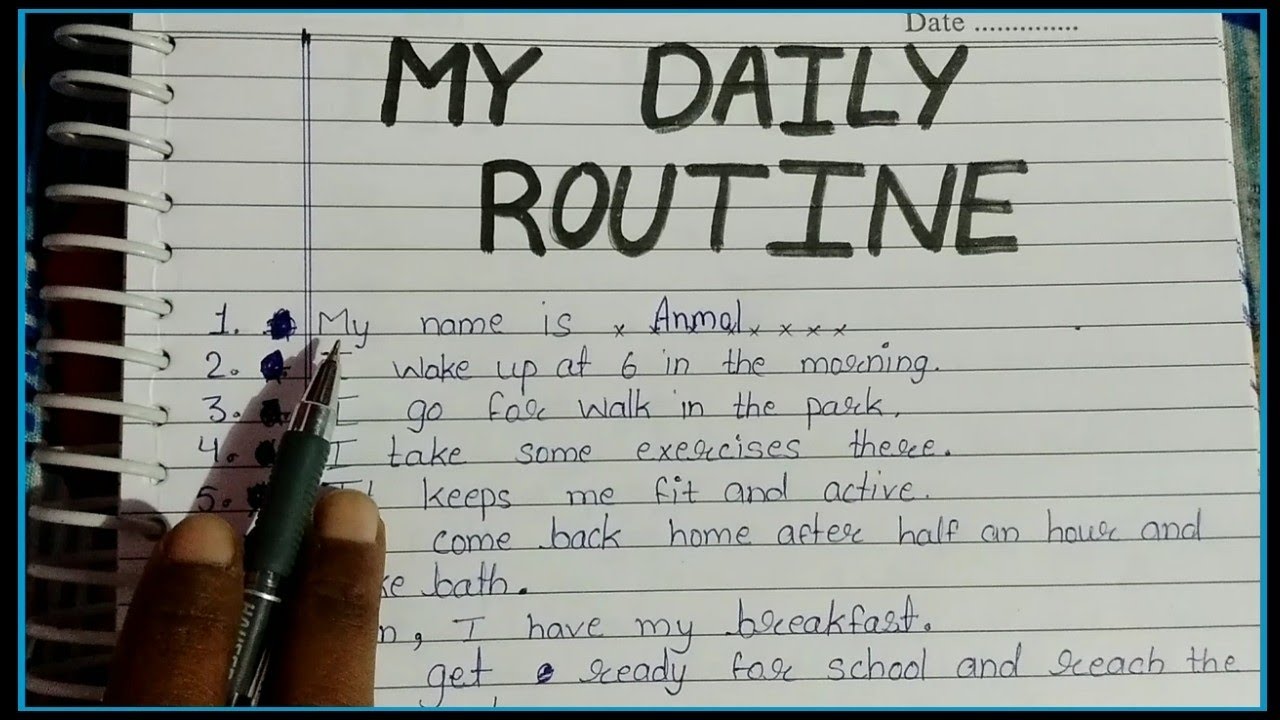 Date ..............
MY DAILY
ROUTINE
1. My name is x Anmol x x x x
2. I wake up at 6 in the morning.
3. I go for walk in the park.
4. I take some exercises there.
5. It keeps me fit and active.
come back home after half an hour and
bath.
I have my breakfast.
get ready for school and reach the